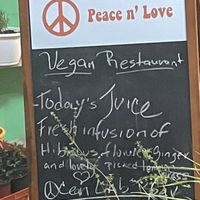 Peace n' Love
Vegan Restaurant
Today's Juice
Fresh infusion of
Hibiscus flower Ginger
and lovely Picked lemon